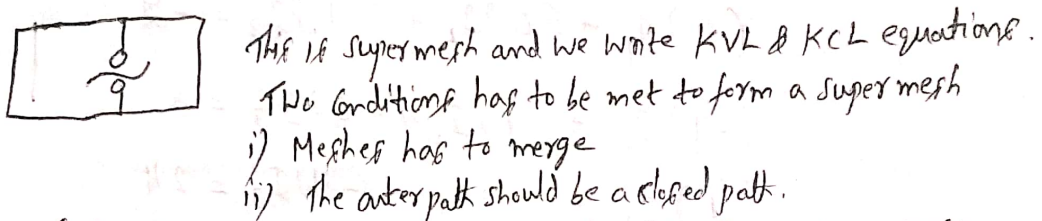 This is supermesh and we write KVL & KCL equations.
Two Conditions has to be met to form a super mesh
i) Meshes has to merge
ii) The outer path should be a closed path.